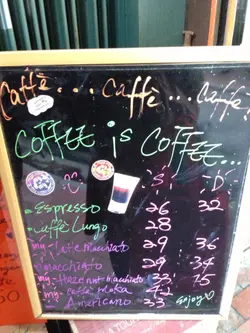 Caffè...Caffè...Caffè!
COFFEE is COFFEE...
°C "S" "D"
Espresso 26 32
Caffè Lungo 28
my-Latte Macchiato 29 36
macchiato 29 34
my-Hazelnut-macchiato 32
my
Americano 33 enjoy